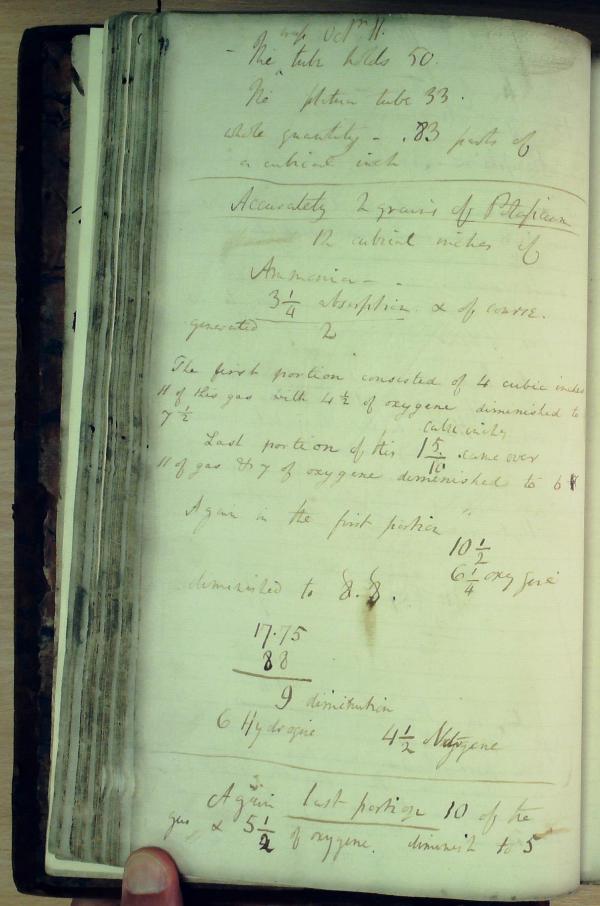 Octr 11.
- The tube holds 50.
The platina tube 33.
whole quantity - .83 parts of
a cubical inch
Accurately 2 grains of Potassium
12 cubical inches of
Ammonia -
3 1/4 absorption & of course.
generated 2
The first portion consisted of 4 cubic inches
11 of this gas with 4 1/2 of oxygene diminished to
7 1/2
cubic inches
Last portion of this 1 5/10 came over
11 of gas & 7 of oxygene diminished to 6
Again in the first portion
10 1/2
6 1/4 oxygene
diminished to 8.8.
17.75
88
9 diminution
6 Hydrogene 4 1/2 Nitrogene
Again last portion 10 of the
gas & 5 1/2 of oxygene. diminish to 5